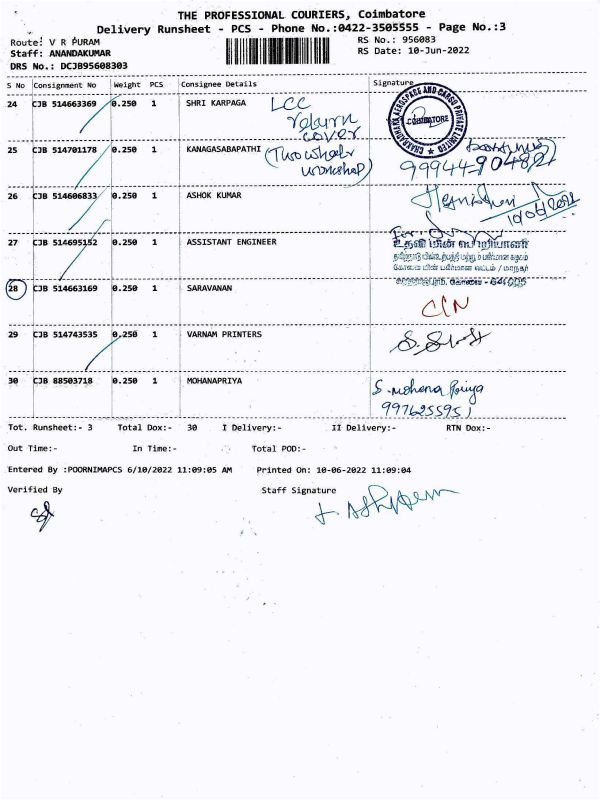 THE PROFESSIONAL COURIERS, Coimbatore
Delivery Runsheet - PCS - Phone No.:0422-3505555 - Page No.:3
Route: V R PURAM
RS No.: 956083
Staff: ANANDAKUMAR
RS Date: 10-Jun-2022
DRS No.: DCJB95608303
S No Consignment No Weight PCS Consignee Details Signature
24 CJB 514663369 0.250 1 SHRI KARPAGA
LCC
return
cover
CHAKRADHARA AEROSPACE AND CARGO PRIVATE LIMITED
COIMBATORE
25 CJB 514701178 0.250 1 KANAGASABAPATHI
(Two wheeler
workshop)
26 CJB 514606833 0.250 1 ASHOK KUMAR
27 CJB 514695152 0.250 1 ASSISTANT ENGINEER
for
உதவி மின் பொறியாளர்
28 CJB 514663169 0.250 1 SARAVANAN
C/N
29 CJB 514743535 0.250 1 VARNAM PRINTERS
30 CJB 88503718 0.250 1 MOHANAPRIYA
S. Mohana Priya
9976255951
Tot. Runsheet:- 3 Total Dox:- 30 I Delivery:- II Delivery:- RTN Dox:-
Out Time:- In Time:- Total POD:-
Entered By :POORNIMAPCS 6/10/2022 11:09:05 AM Printed On: 10-06-2022 11:09:04
Verified By Staff Signature